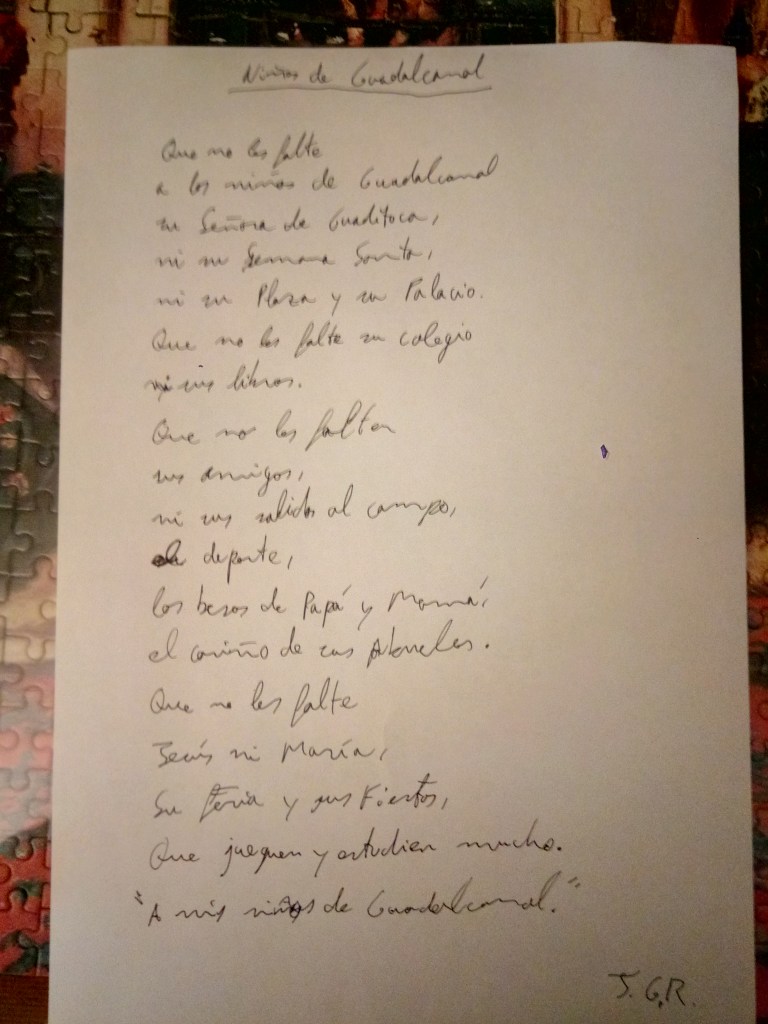 Niños de Guadalcanal
Que no les falte
a los niños de Guadalcanal
su Señora de Guaditoca,
ni su Semana Santa,
ni su Plaza y su Palacio.
Que no les falte su colegio
ni sus libros.
Que no les falten
sus amigos,
ni sus salidas al campo,
el deporte,
los besos de Papá y Mamá,
el cariño de sus Abuelos.
Que no les falte
Jesús ni María,
Su Feria y sus Fiestas,
Que jueguen y estudien mucho.
"A mis niños de Guadalcanal."
J. G.R.